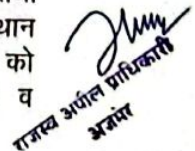 थान
को
व
राजस्व अपील प्राधिकारी
अजमेर